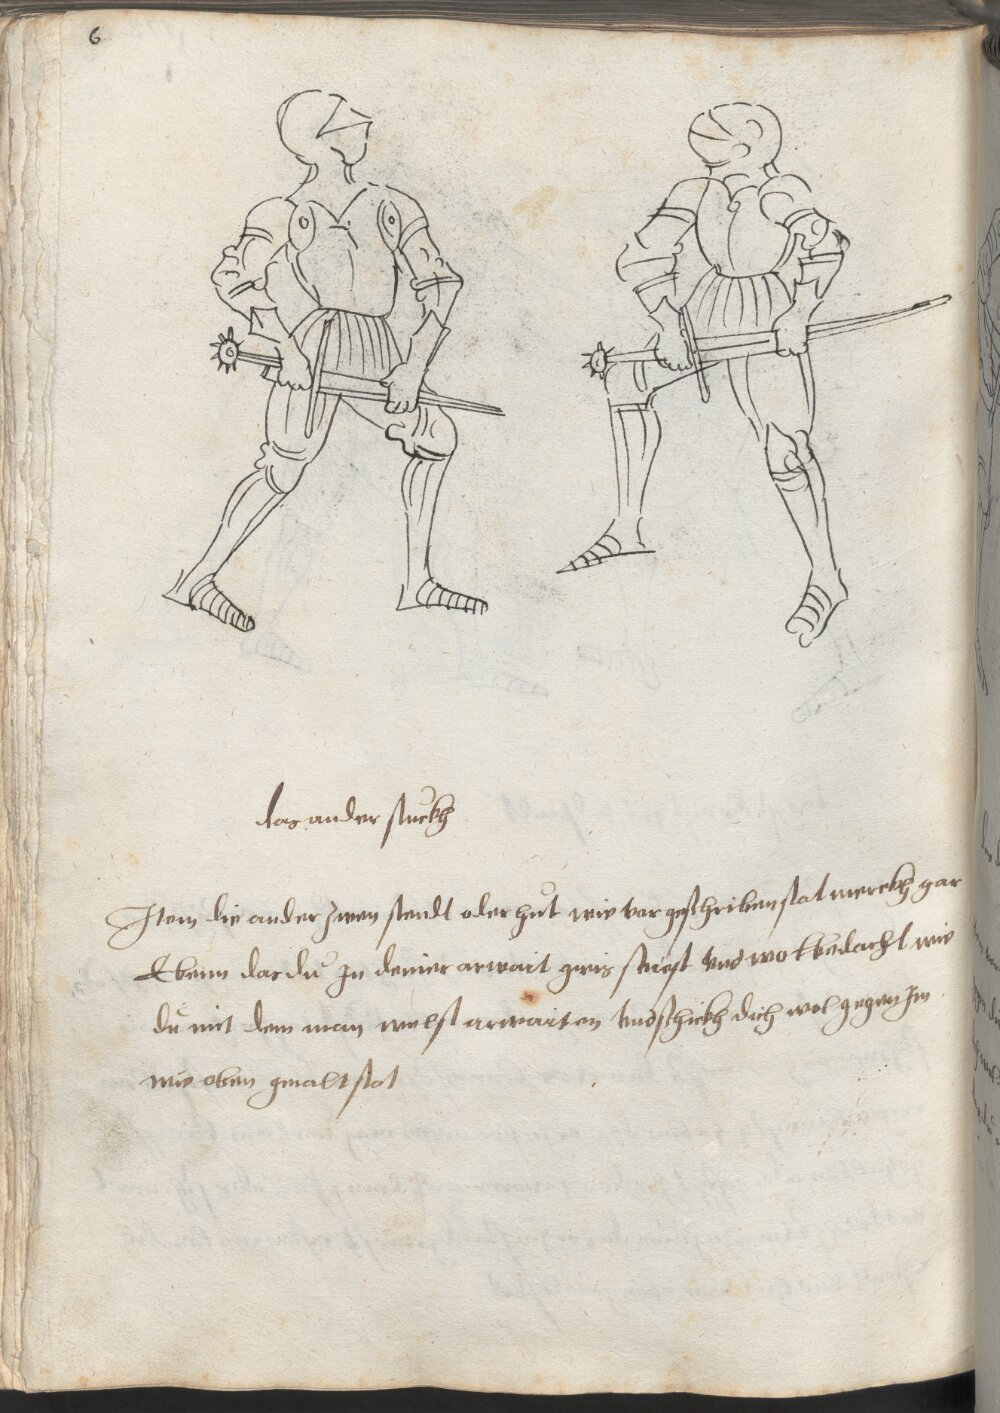 6
das ander stuckh
Item die ander zwen stendt oder hut wie vor geschriben stat merckh gar
Ebenn das du In deiner arwait gwis seiest vnd wol bedacht wie
du mit dem man welst arwaiten vnd schickh dich wol gegen Im
wie oben gmalt stat